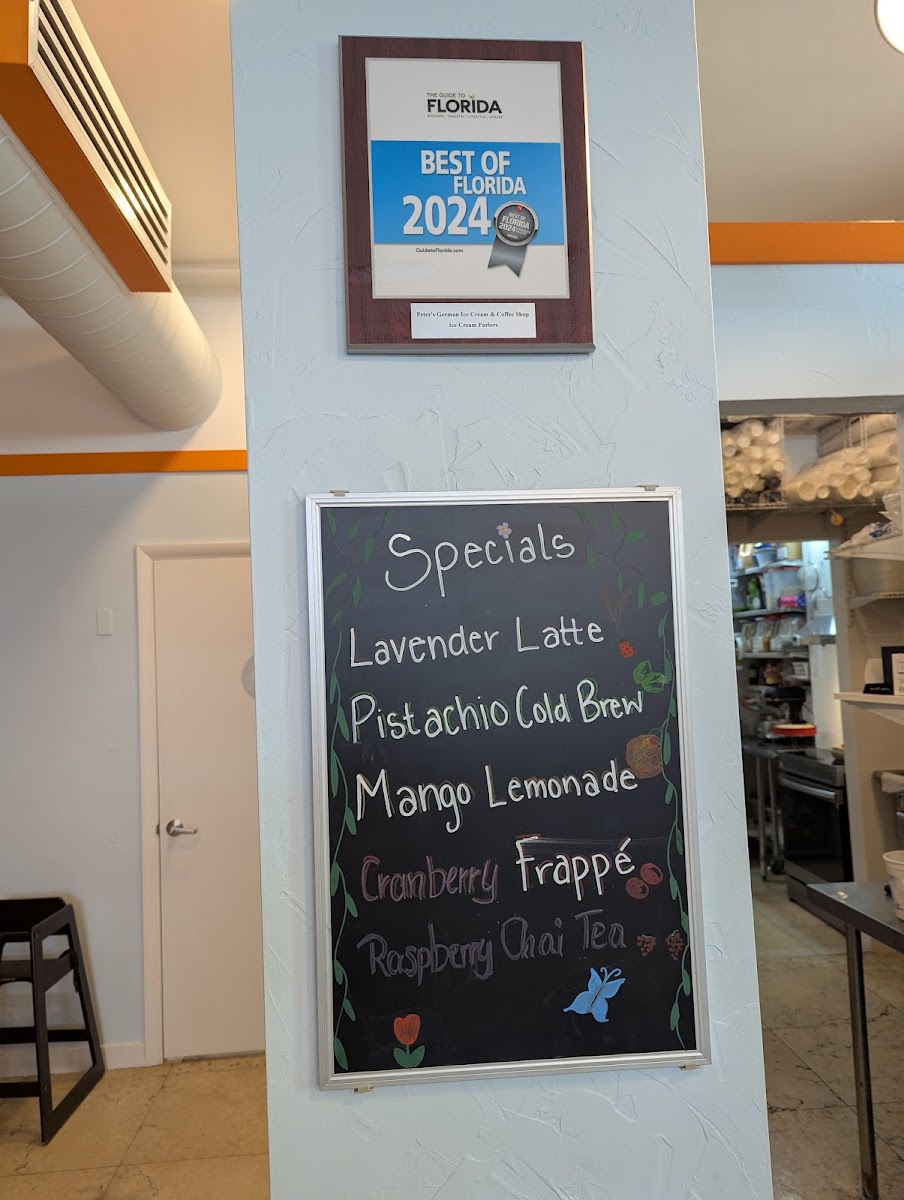 THE GUIDE TO
FLORIDA
BUSINESS · INDUSTRY · LIFESTYLE · LEISURE
BEST OF
FLORIDA
2024
BEST OF
FLORIDA
2024
GuidetoFlorida.com
Peter's German Ice Cream & Coffee Shop
Ice Cream Parlors
Specials
Lavender Latte
Pistachio Cold Brew
Mango Lemonade
Cranberry Frappé
Raspberry Chai Tea